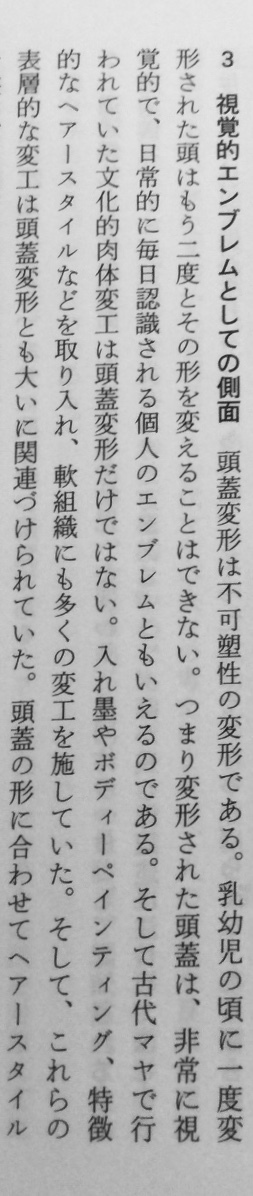 3 視覚的エンブレムとしての側面 頭蓋変形は不可塑性の変形である。乳幼児の頃に一度変
形された頭はもう二度とその形を変えることはできない。つまり変形された頭蓋は、非常に視
覚的で、日常的に毎日認識される個人のエンブレムともいえるのである。そして古代マヤで行
われていた文化的肉体変工は頭蓋変形だけではない。入れ墨やボディーペインティング、特徴
的なヘアースタイルなどを取り入れ、軟組織にも多くの変工を施していた。そして、これらの
表層的な変工は頭蓋変形とも大いに関連づけられていた。頭蓋の形に合わせてヘアースタイル